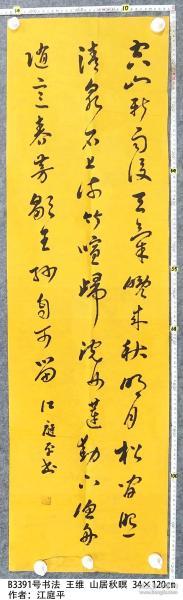 空山新雨後天氣晚来秋明月松間照
清泉石上流竹喧歸浣女蓮動下漁舟
随意春芳歇王孫自可留 江庭平书
B3391号书法 王维 山居秋暝 34×120cm
作者：江庭平